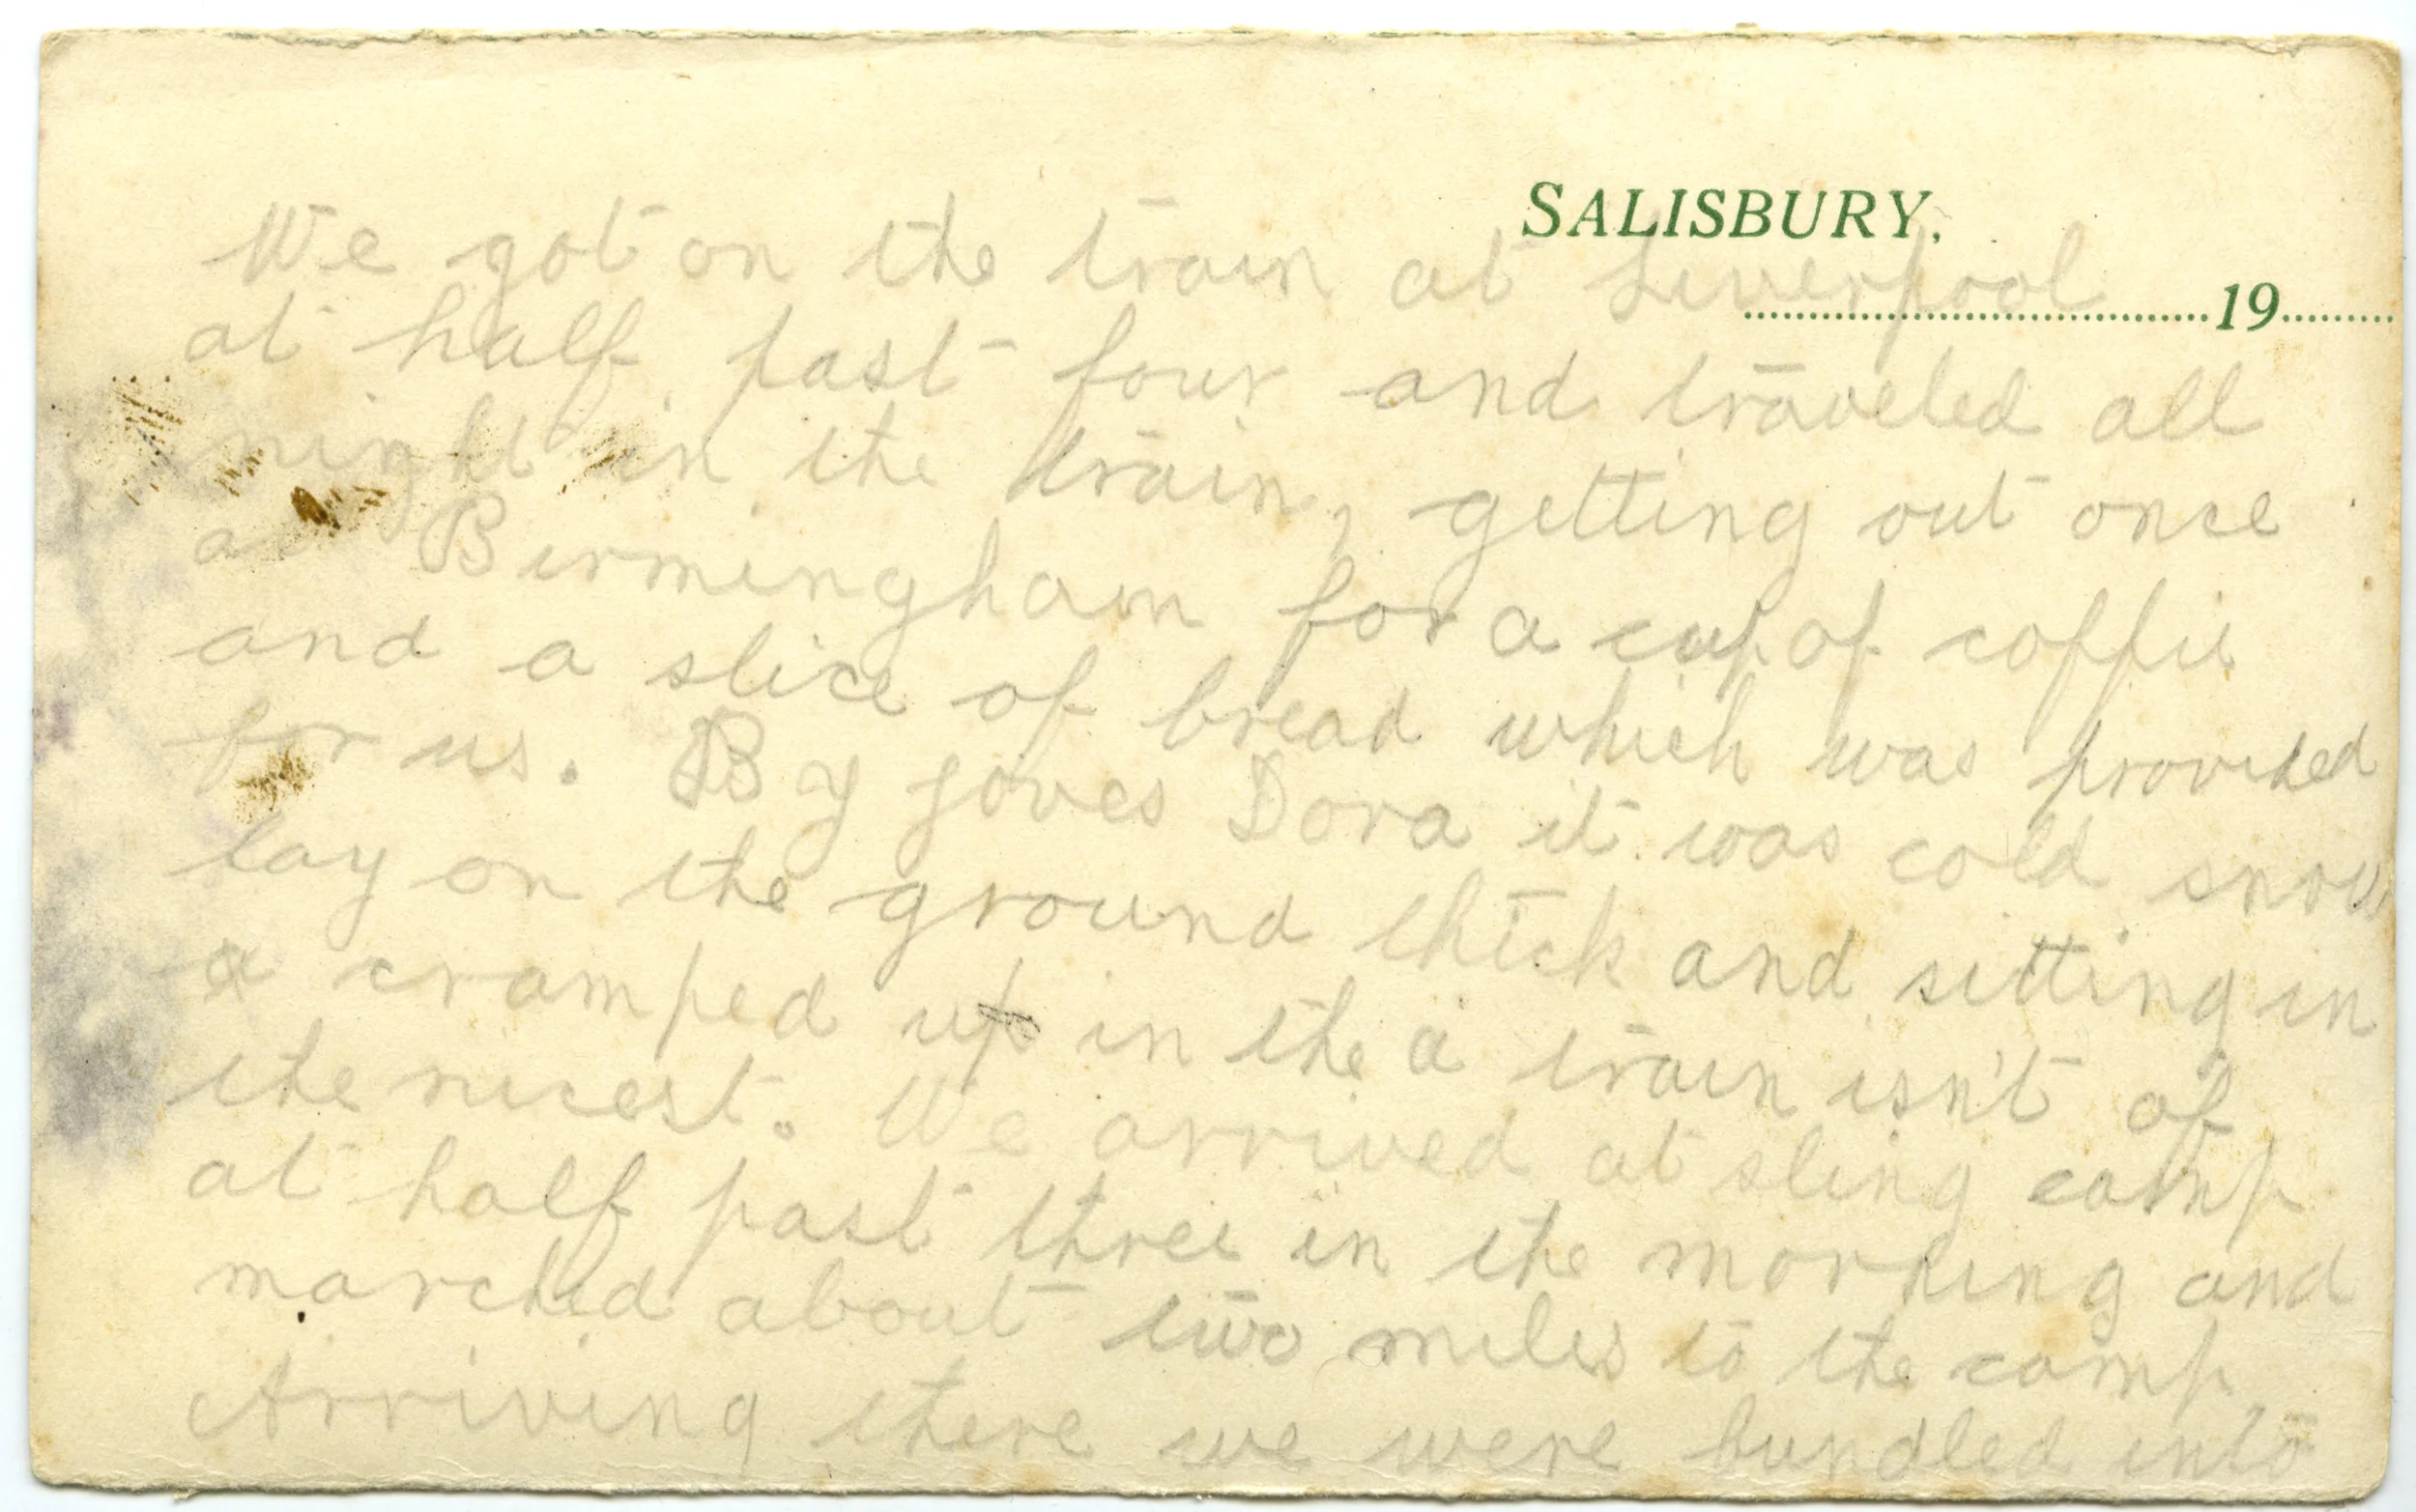 SALISBURY,
19
We got on the train at Liverpool
at half past four and traveled all
night in the train, getting out once
at Birmingham for a cup of coffee
and a slice of bread which was provided
for us. By joves Dora it was cold snow
lay on the ground thick and sitting in
a cramped up in the a train isn't of
the nicest. We arrived at sling camp
at half past three in the morning and
marched about two miles to the camp
Arriving there we were bundled into